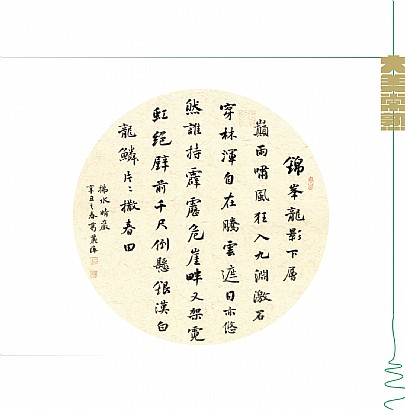 锦峯龍影下層
巔雨嘯風狂入九淵激石
穿林渾自在騰雲遮日亦悠
然誰持霹靂危崖畔又架霓
虹絕壁前千尺倒懸銀漢白
龍鱗片々撒春田
拂水晴巖
辛丑之春
大美常熟